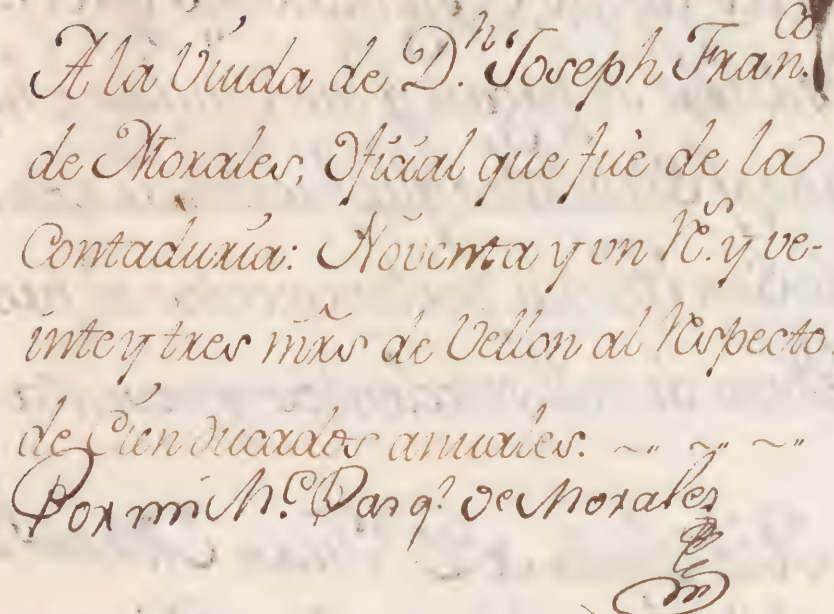 A la Viuda de D.ⁿ Joseph Fran.ᶜᵒ
de Morales, Oficial que fuè de la
Contaduria: Noventa y vn R.ˢ y ve-
inte y tres mr̃s de Vellon al Respecto
de Cien Ducados anuales. ~" ~" ~"
Por mi M.ᵉ Pasq.ˡ de Morales